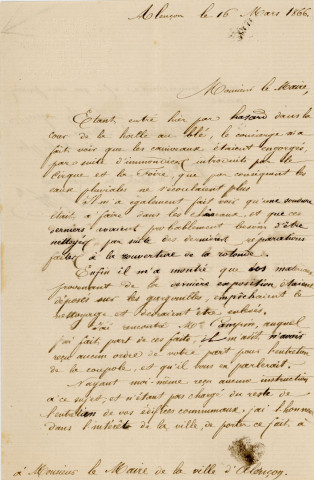 Alençon le 16 Mars 1866
Monsieur le Maire,
Etant entré hier par hasard dans la
cour de la halle au blé, le concierge m'a
fait voir que les caniveaux étaient engorgés
par suite d'immondices introduits par le
Cirque et la Foire, que par conséquent les
eaux pluviales ne s'écoulaient plus
Il m'a également fait voir qu'une soudure
était à faire dans les chéneaux et que ces
derniers avaient probablement besoin d'être
nettoyés par suite des dernières réparations
faites à la couverture de la rotonde.
Enfin il m'a montré que des matériaux
provenant de la dernière exposition étaient
déposés sur les gargouilles, empêchaient le
nettoyage et devraient être enlevés.
J'ai rencontré Mr. Campion, auquel
j'ai fait part de ces faits, il m'a dit n'avoir
reçu aucun ordre de votre part pour l'entretien
de la coupole, et qu'il vous en parlerait.
N'ayant moi-même reçu aucune instruction
à ce sujet, et n'étant pas chargé du reste de
l'entretien de vos édifices communaux, j'ai l'honneur
dans l'intérêt de la ville, de porter ce fait, à
à Monsieur le Maire de la ville d'Alençon.